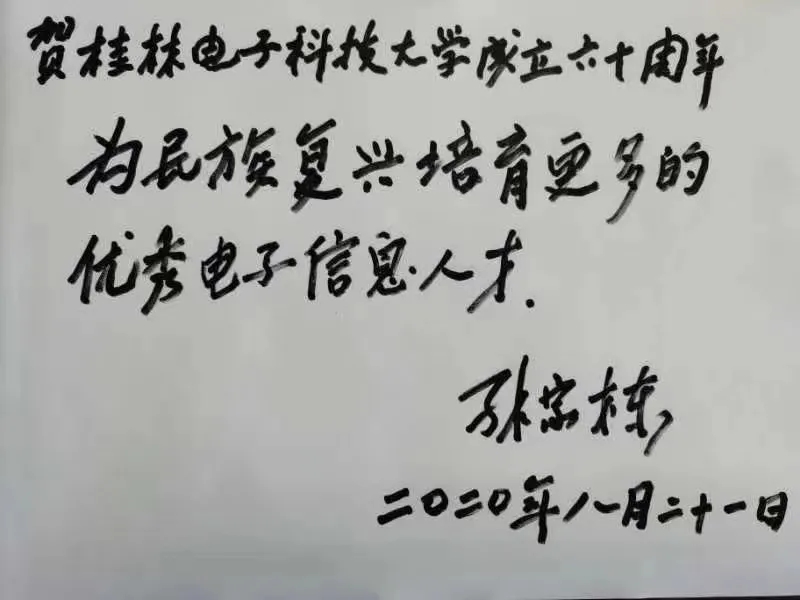 贺桂林电子科技大学成立六十周年
为民族复兴培育更多的
优秀电子信息人才.
张宗栋
二〇二〇年八月二十一日